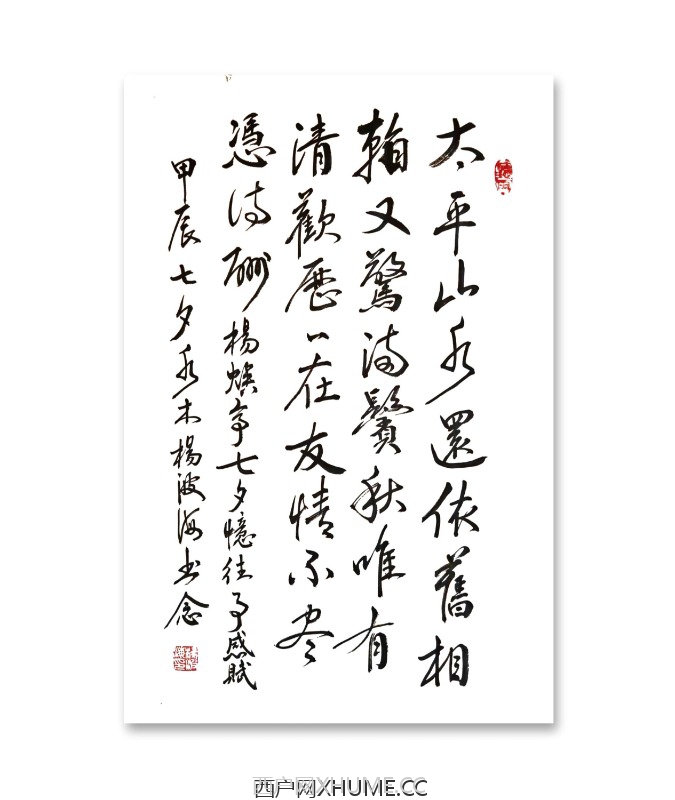 太平山水還依舊相
翰又驚满鬢秋唯有
清歡歷〻在友情不尽
憑诗酬楊焕亭七夕憶往事感賦
甲辰七夕水木楊波海书念
西户网XHUME.CC